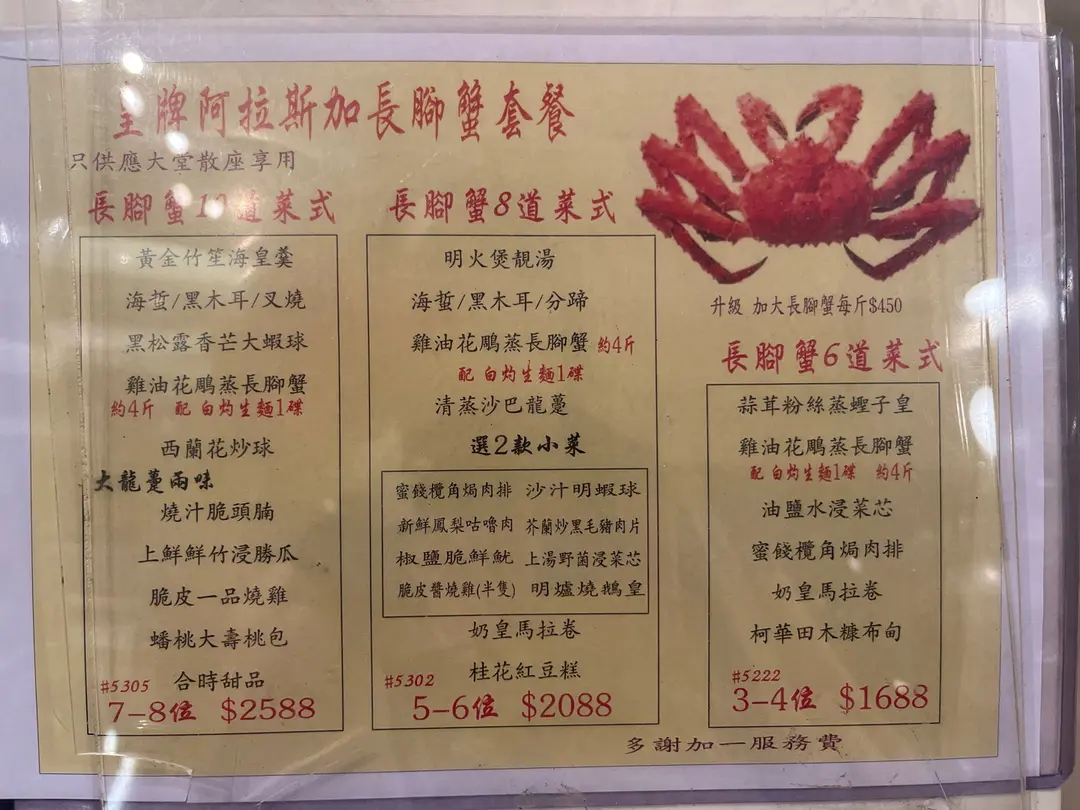 皇牌阿拉斯加長腳蟹套餐
只供應大堂散座享用
長腳蟹10道菜式
黃金竹笙海皇羹
海蜇/黑木耳/叉燒
黑松露香芒大蝦球
雞油花鵰蒸長腳蟹
約4斤 配 白灼生麵1碟
西蘭花炒球
大龍躉兩味
燒汁脆頭腩
上鮮鮮竹浸勝瓜
脆皮一品燒雞
蟠桃大壽桃包
合時甜品
#5305
7-8位 $2588
長腳蟹8道菜式
明火煲靚湯
海蜇/黑木耳/分蹄
雞油花鵰蒸長腳蟹 約4斤
配 白灼生麵1碟
清蒸沙巴龍躉
選2款小菜
蜜餞欖角焗肉排 沙汁明蝦球
新鮮鳳梨咕嚕肉 芥蘭炒黑毛豬肉片
椒鹽脆鮮魷 上湯野菌浸菜芯
脆皮醬燒雞(半隻) 明爐燒鵝皇
奶皇馬拉卷
桂花紅豆糕
#5302
5-6位 $2088
升級 加大長腳蟹每斤$450
長腳蟹6道菜式
蒜茸粉絲蒸蟶子皇
雞油花鵰蒸長腳蟹
配 白灼生麵1碟 約4斤
油鹽水浸菜芯
蜜餞欖角焗肉排
奶皇馬拉卷
柯華田木糠布甸
#5222
3-4位 $1688
多謝加一服務費